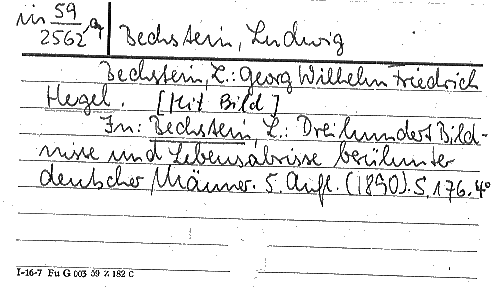 in 59/2562 a Bechstein, Ludwig
Bechstein, L.: Georg Wilhelm Friedrich
Hegel. [Mit Bild]
In: Bechstein, L.: Dreihundert Bild-
nisse und Lebensabrisse berühmter
deutscher Männer. 5. Aufl. (1890). S. 176. 4°
I-16-7 Fu G 003 59 Z 182 C